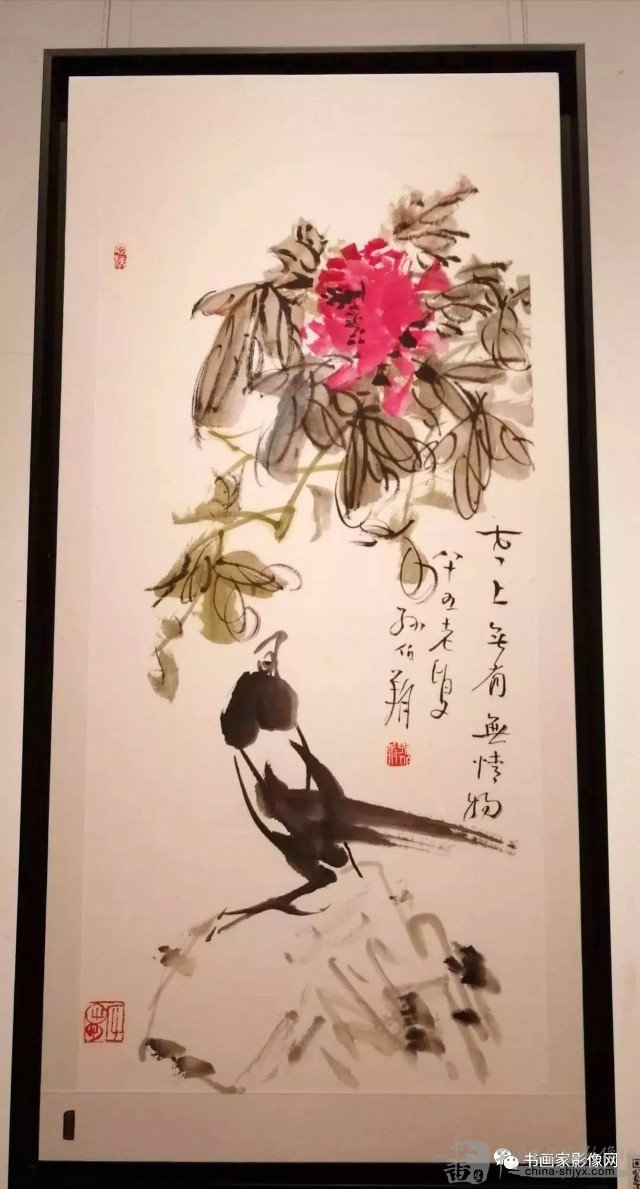 世上有無情物
八十五老叟
孙伯翔
书画家影像网
china-shjyx.com